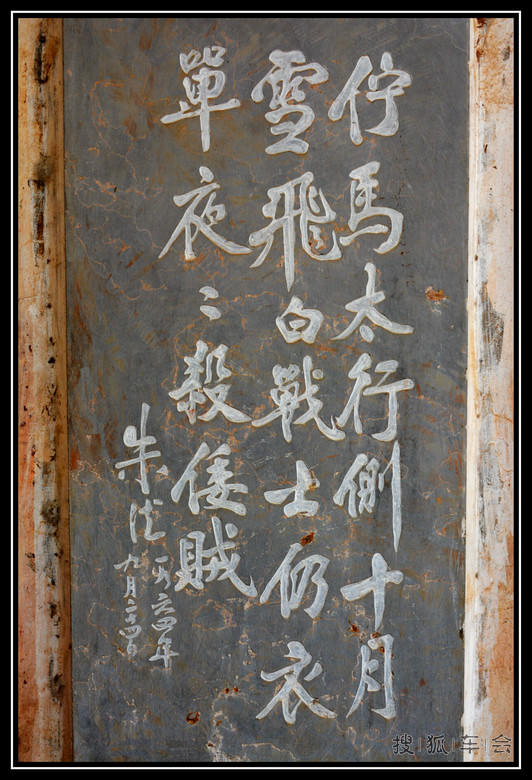 佇馬太行側十月
雪飛白戰士仍衣
單夜〻殺倭賊
朱德
一九六四年
九月
搜狐车会